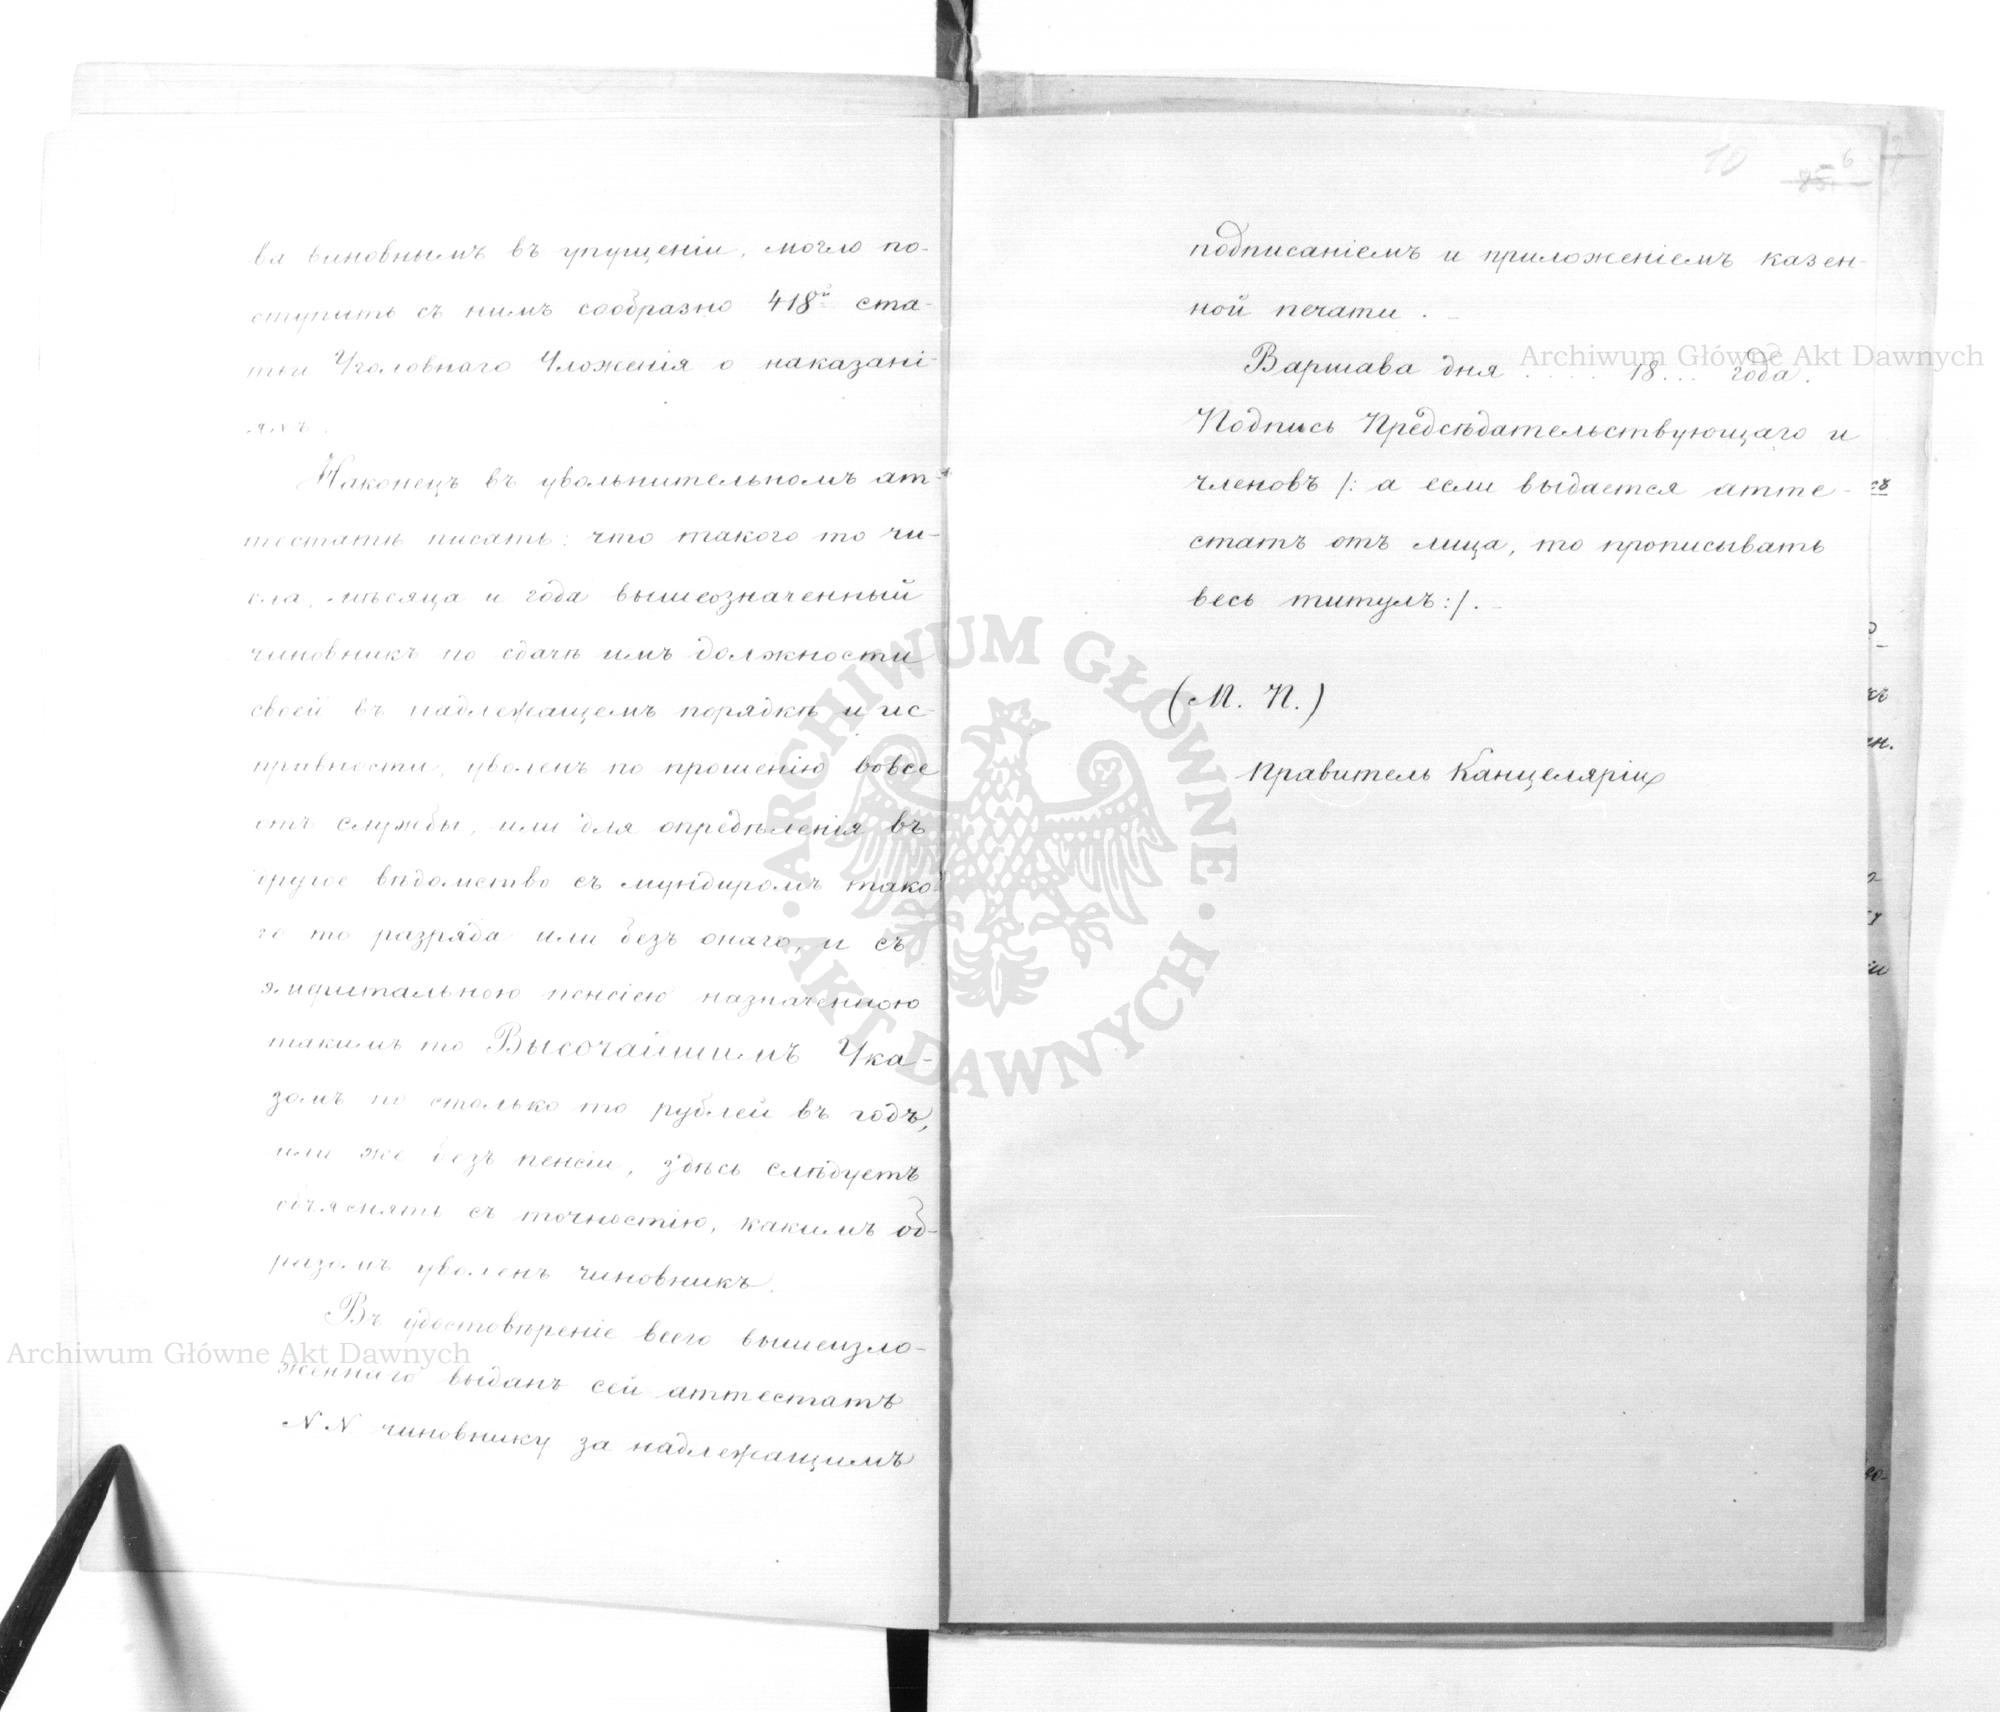 ва виновнымъ въ упущеніи, могло по-
ступить съ нимъ сообразно 418й ста-
тьи Уголовнаго Уложенія о наказані-
яхъ.
Наконецъ въ увольнительномъ ат-
тестатѣ писать: что такого то чи-
сла, мѣсяца и года вышеозначенный
чиновникъ по сдачѣ имъ должности
своей въ надлежащемъ порядкѣ и ис-
правности, уволенъ по прошенію вовсе
отъ службы, или для опредѣленія въ
другое вѣдомство съ мундиромъ тако-
го то разряда или безъ онаго, и съ
эмеритальною пенсіею назначенною
такимъ то Высочайшимъ Ука-
зомъ по столько то рублей въ годъ,
или же безъ пенсіи, здѣсь слѣдуетъ
объяснять съ точностію, какимъ об-
разомъ уволенъ чиновникъ.
Въ удостовѣреніе всего вышеизло-
женнаго выданъ сей аттестатъ
NN чиновнику за надлежащимъ
10
85 6
подписаніемъ и приложеніемъ казен-
ной печати.
Варшава дня .... 18... года.
Подпись Предсѣдательствующаго и
членовъ /: а если выдается атте-
статъ отъ лица, то прописывать
весь титулъ :/.
(М. П.)
Правитель Канцеляріи
Archiwum Główne Akt Dawnych
Archiwum Główne Akt Dawnych
ARCHIWUM GŁÓWNE · AKT DAWNYCH ·